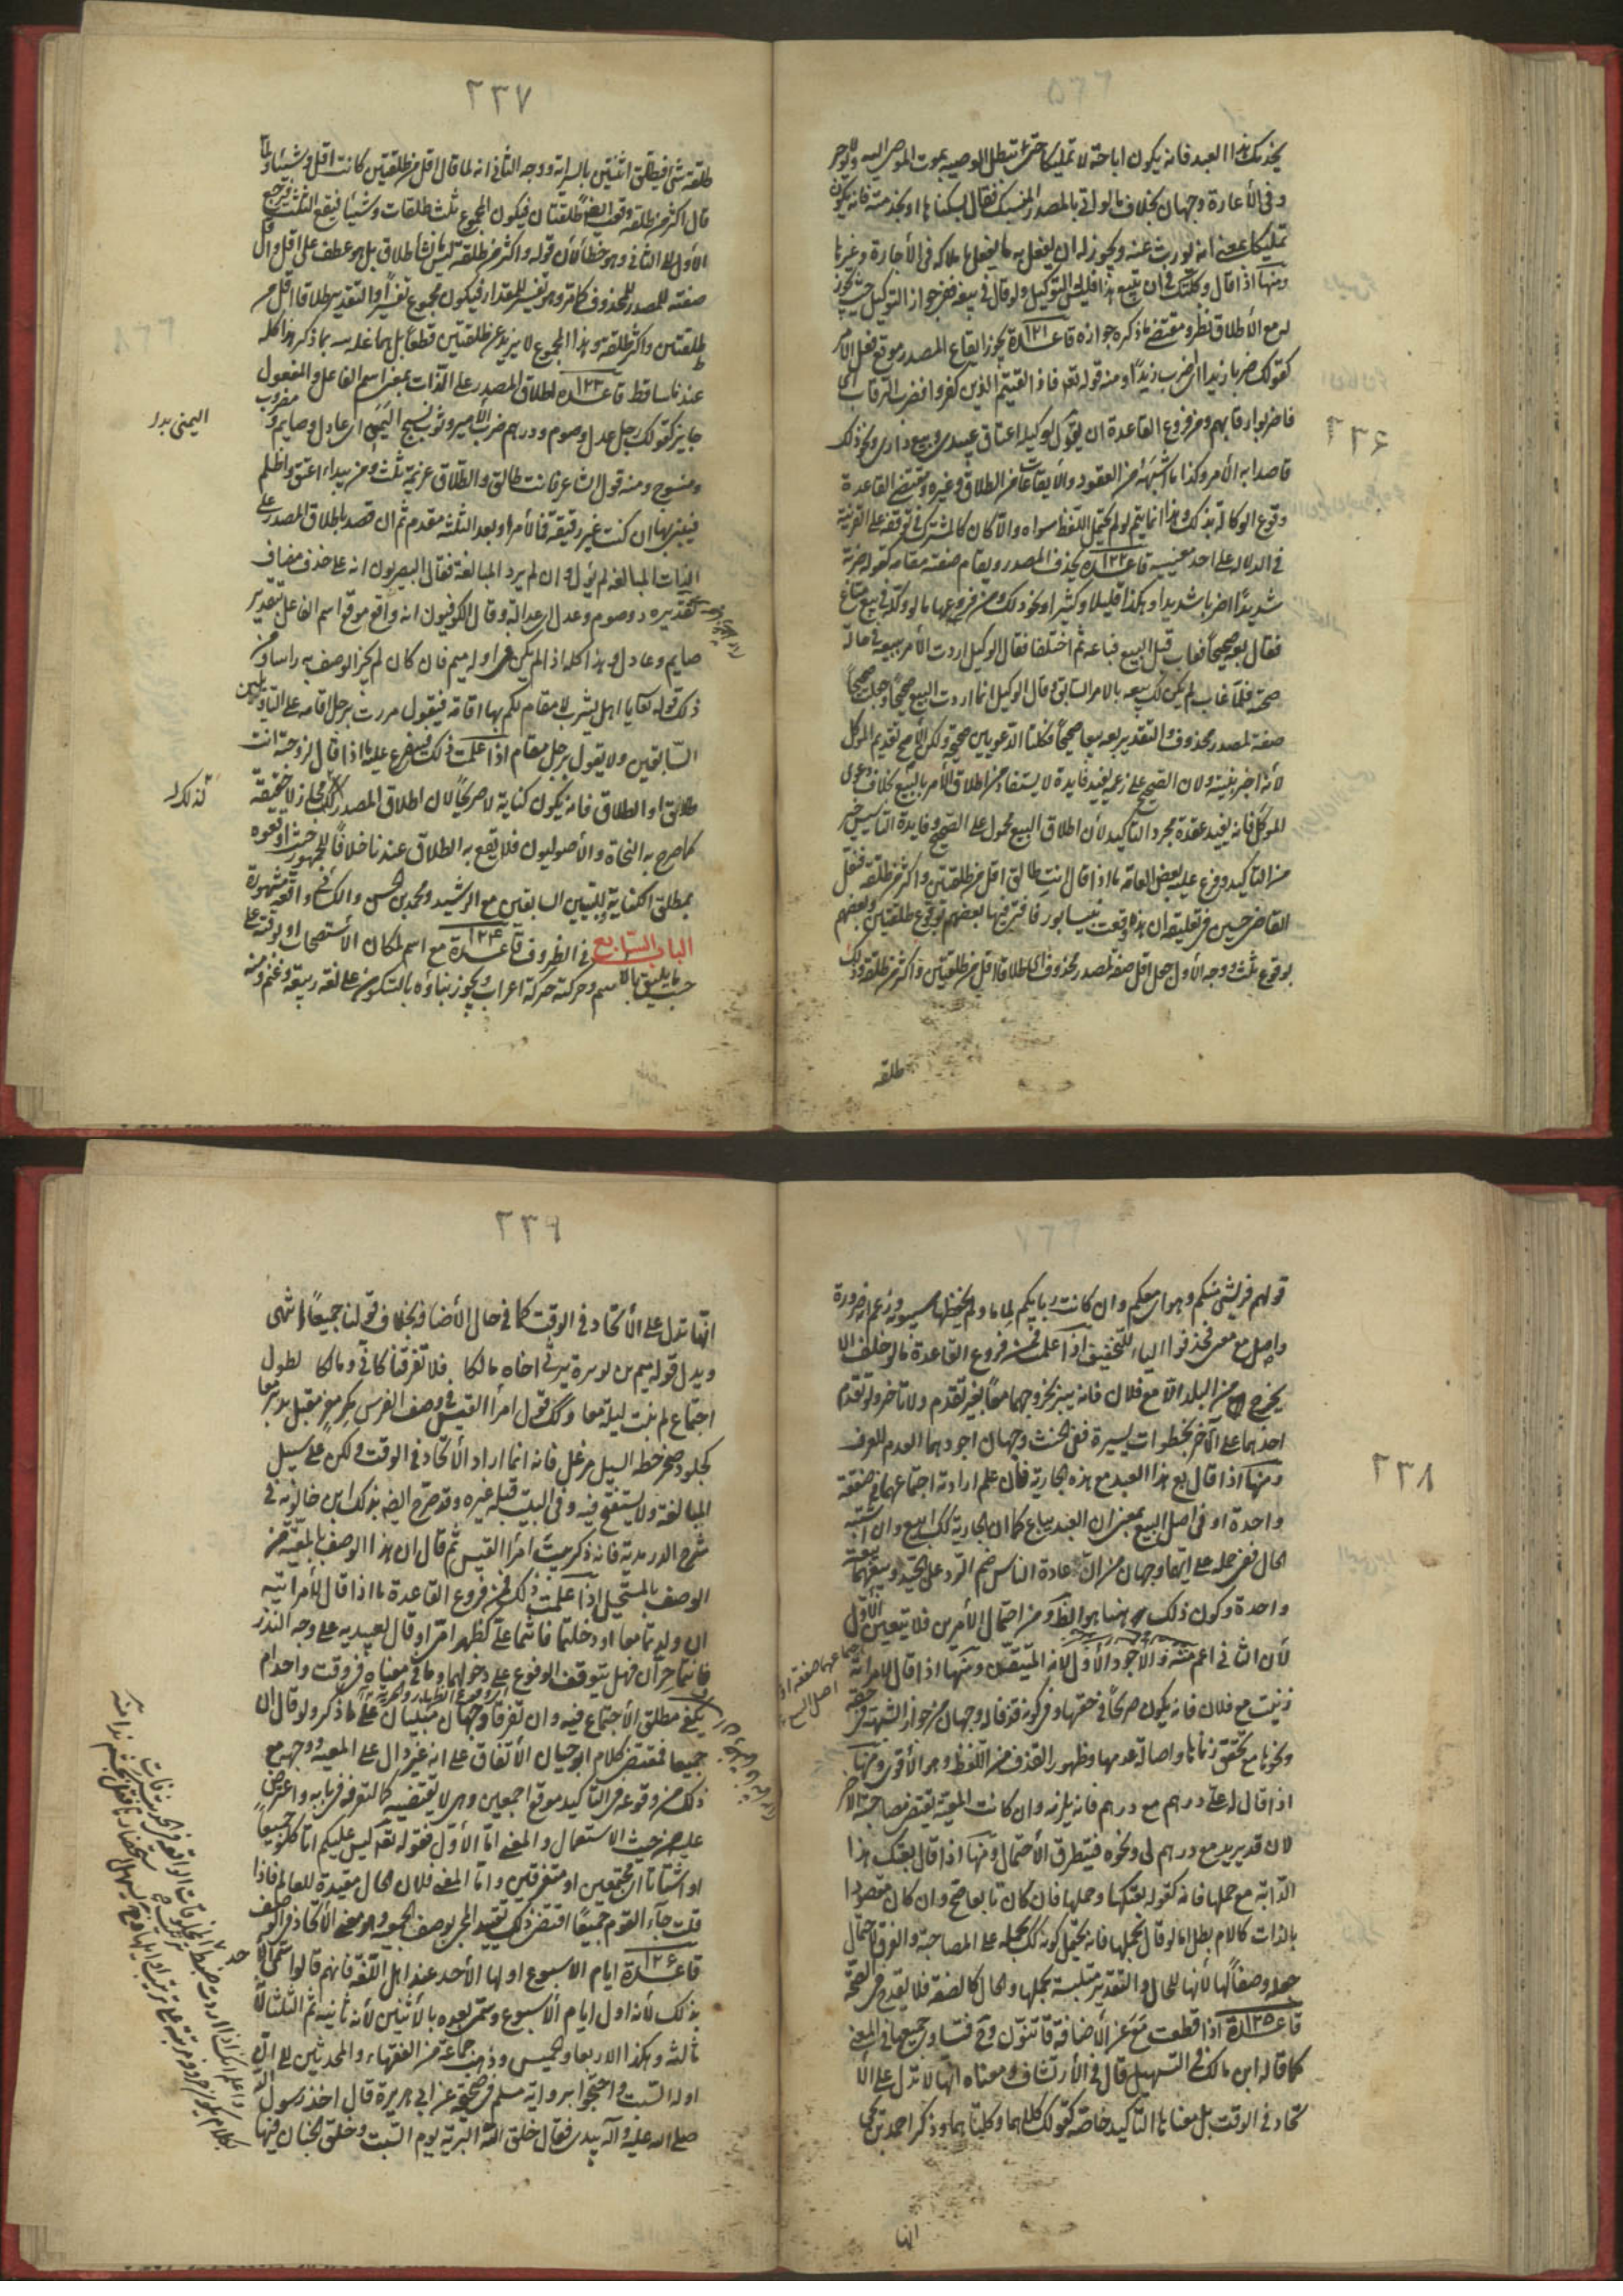 ٢٣٦
يخدمك هذا العبد فانه يكون اباحة لا تمليكا حتى تبطل الوصية بموت الموصى اليه
وفي الأعارة وجهان بخلاف ما لو اتى بالمصدر فقال بسكناها او بخدمته فانه يكون
تمليكا بمعنى انه يورث عنه ويجوز له ان يفعل به ما يفعل ملاكه في الأجارة وغيرها
ومنها اذا قال وكلتك في ان تبيع هذا فليس التوكيل ولو قال في بيعه ففي جواز التوكيل حيث يجوز
له مع الأطلاق نظر ومقتضى ما ذكره جوازه قاعدة ١٢١ يجوز ايقاع المصدر موقع فعل الأمر
كقولك ضربا زيدا اى اضرب زيدًا ومنه قوله تعه فاذا لقيتم الذين كفروا فضرب الرقاب اى
فاضربوا رقابهم ومن فروع القاعدة ان يقول لوكيله اعتاق عبيدى وبيع دارى ونحو ذلك
قاصدا به الأمر وكذا ما اشبهه من العقود والايقاعات من الطلاق وغيره ومقتضى القاعدة
وقوع الوكالة بذلك وهذا انما يتم لو لم يحتمل اللفظ سواه والا كان كالمشترك في توقفه على القرينة
في الدلالة على احد معنييه قاعدة ١٢٢ يحذف المصدر ويقام صفته مقامه كقوله ضربته
شديدًا اى ضربا شديدا وهكذا قليلا وكثيرا ونحو ذلك ومن فروعها ما لو وكله في بيع متاع
فقال بعه صحيحًا فعاب قبل البيع فباعه ثم اختلفا فقال الوكيل اردت الأمر ببيعه في حالة
صحته فلما غاب لم يكن لك بيعه بالامر السابق وقال الوكيل انما اردت البيع صحيحًا وجعلت صحيحًا
صفة لمصدر محذوف والتقدير بعه بيعا صحيحًا فكلتا الدعويين صحيحة ولكن الأصح تقديم الموكل
لأنه اخبر بنيته ولان الصحيح على زعمه يفيد فايدة لا يستفاد من اطلاق الأمر بالبيع بخلاف دعوى
الموكل فانه يفيد عقده مجرد التأكيد لأن اطلاق البيع محمول على الصحيح وفايدة التأسيس خير
من التأكيد وفرع عليه بعض العامة ما اذا قال انت طالق اقل من طلقتين واكثر من طلقة فنقل
القاضى حسين في تعليقه ان هذه وقعت بنيسابور فافتى فيها بعضهم بوقوع طلقتين وبعضهم
بوقوع ثلث ووجه الأول جعل اقل صفة لمصدر محذوف اى طلاقا اقل من طلقتين واكثر من طلقة وذلك
طلقة
٢٣٧
طلقة شئ فيطلق اثنتين بالسراية ووجه الثانى انه لما قال اقل من طلقتين كانت اقل وشيئا ولما
قال اكثر من طلقة وقعت ايضا طلقتان فيكون المجموع ثلث طلقات وشيئا فيقع الثلث ورجع
الأول الى الثانى وهو خطأ لأن قوله واكثر من طلقة ليس انشأ طلاق بل هو عطف على اقل واقل
صفة للمصدر المحذوف كما تر وهو تفسير للمقدار فيكون مجموع تفسيرًا والتقدير طلاقا اقل من
طلقتين واكثر طلقة وهذا المجموع لا يزيد عن طلقتين قطعًا بل بما ذكر هذا كله
عندنا ساقط قاعدة ١٢٣ اطلاق المصدر على الذات بمعنى اسم الفاعل والمفعول
جايز كقولك رجل عدل وصوم ودرهم ضرب الأمير وثوب نسج اليمن اى عادل وصايم ومضروب
ومنسوج ومنه قول الشاعر فانت طالق والطلاق عزيمة ثلث ومن يبدا اعق واظلم
فبينى بها ان كنت غير رفيقة فما لأمرء بعد الثلث مقدم ثم ان قصد باطلاق المصدر على
الذات المبالغة لم يؤل وان لم يرد المبالغة فقال البصريون انه على حذف مضاف
تقديره ذو صوم وعدل اى عدالة وقال الكوفيون انه واقع موقع اسم الفاعل بتقدير
صايم وعادل وهذا كله اذا لم يكن في اوله ميم فان كان لم يجز الوصف به راسا ومن
ذلك قوله تعه يا اهل يثرب لا مقام لكم بها اقامة فيقول مررت برجل اقامة على التأويلين
السابقين ولا يقول برجل مقام اذا علمت ذلك فيتفرع عليه ما اذا قال لزوجته انت
طلاق او الطلاق فانه يكون كناية لا صريحًا لان اطلاق المصدر كذلك مجاز لا حقيقة
كما صرح به النحاة والأصوليون فلا يقع به الطلاق عندنا خلافا للجمهور حيث اوقعوه
بمطلق الكناية للبيتين السابقين مع الرشيد ومحمد بن الحسن والكسائى واقعة مشهورة
الباب السابع في الظروف قاعدة ١٢٤ مع اسم لمكان الأستصحاب او وقته على
حسب ما يليق بالاسم وحركته حركة اعراب ويجوز بناؤه بالسكون على لغة ربيعة وغنم ومنه
اليمنى بدل
٢٣٨
قولهم فريشى منكم وهواى معكم وان كانت زيارتكم لماما ولم يحفظها سيبويه فزعم انه ضرورة
واصل مع معى فحذفوا الياء للتخفيف اذا علمت فمن فروع القاعدة ما لو حلف الا
يخرج من البلد الا مع فلان فانه يبر بخروجهما معًا بغير تقدم ولا تاخر ولو تقدم
احدهما على الآخر بخطوات يسيرة ففى الحنث وجهان اجودهما العدم للعرف
ومنها اذا قال بع هذا العبد مع هذه الجارية فان علم ارادة اجتماعهما في صفقة
واحدة او في اصل البيع بمعنى ان العبد يباع كما ان الجارية كك اتبع وان اشتبه
الحال ففى حمله على ايهما وجهان من ان عادة الناس ضم الردى على الجيد وبيعهما بيعة
واحدة وكون ذلك هنا هو الظ ومن احتمال الأمرين فلا يتعين الأول
لأن الثانى اعم منه والأجود الأول لانه المتيقن ومنها اذا قال لامراته
زنيت مع فلان فانه يكون صريحًا في حقها وفى كونه قذفا له وجهان من جواز الشبهة في حقه
ونحوها مع تحقق زناها واصالة عدمها وظهور القذف من اللفظ وهو الأقوى ومنها
اذا قال له على درهم مع درهم فانه يلزمه وان كانت المعية يقتضى مصاحبة الآخر
لان قد يريد مع درهم لى ونحوه فيتطرق الأحتمال ومنها اذا قال بعتك هذا
الدابة مع حملها فانه كقوله بعتكها وحملها فان كان تابعا صح وان كان مقصودا
بالذات كالام بطل اما لو قال بحملها فانه يحتمل كونه كك بحمله على المصاحبة والفرق لاحتمال
جعله وصفًا لها لأنها للحال والتقدير متلبسة بحملها والحال كالصفة فلا يقدح في الصحة
قاعدة ١٢٥ اذا قطعت مع عن الأضافة قد تنون وهى تساوى جميعا في المعنى
كما قاله ابن مالك في التسهيل قال في الأرتشاف ومعناه انها لا تدل على الأ
تحاد في الوقت بل معناها التأكيد خاصة كقولك كلاهما وكلتاهما وذكر احمد بن يحيى
انها
٢٣٩
انها تدل على الأتحاد في الوقت كما في حال الأضافة بخلاف قولنا جميعًا انتهى
ويدل قوله متمم بن نويرة يرثى اخاه مالكا فلا تفرقنا كانى ومالكا لطول
اجتماع لم نبت ليلة معا وكك قول امرأ القيس في وصف الفرس مكر مفر مقبل مدبر معا
كجلمود صخر حطه السيل من عل فانه انما اراد الأتحاد في الوقت ولكن على سبيل
المبالغة ولا يستقيم فيه وفى البيت قبله غيره وقد صرح ايضه بذلك ابن خالويه في
شرح الدريدية فانه ذكر بيت امرأ القيس ثم قال ان هذا الوصف بالمعية من
الوصف بالمستحيل اذا علمت ذلك فمن فروع القاعدة ما اذا قال لأمراتيه
ان ولدتما معا او دخلتما فانتما على كظهر امى او قال لعبديه على وجه النذر
فانتما حران فهل يتوقف الوقوع على دخولهما وما في معناه في وقت واحد ام
يكفى مطلق الأجتماع فيه وان تفرقا وجهان مبنيان على ما ذكر ولو قال ان
جميعا فمقتضى كلام ابو حيان الأتفاق على انه غير دال على المعية ووجهه مع
ذلك من وقوعه في التأكيد موقع اجمعين وهى لا تقتضيه كما تعرفه في بابه واعترض
عليه من حيث الاستعمال والمعنى اما الأول فقوله تعه ليس عليكم ان تاكلوا جميعًا
او اشتاتا اى مجتمعين او متفرقين واما المعنى فلان الحال مقيدة للعامل فاذا
قلت جآء القوم جميعًا اقتضى ذلك تقييد المجئ بوصف الجمعية وهو معنى الأتحاد في الوقت
قاعدة ١٢٦ ايام الاسبوع اولها الأحد عند اهل اللغة فانهم قالوا سمى
بذلك لأنه اول ايام الأسبوع وسمى بعده بالأثنين لأنه ثانيه ثم الثلثا لأنه
ثالثه وهكذا الاربعا والخميس وذهب جماعة من الفقهاء والمحدثين الى ان
اوله السبت واحتجوا برواية مسلم في صحيحه عن ابى هريرة قال اخذ رسول الله
صلى الله عليه وآله بيدى فقال خلق الله التربة يوم السبت وخلق الجبال فيها